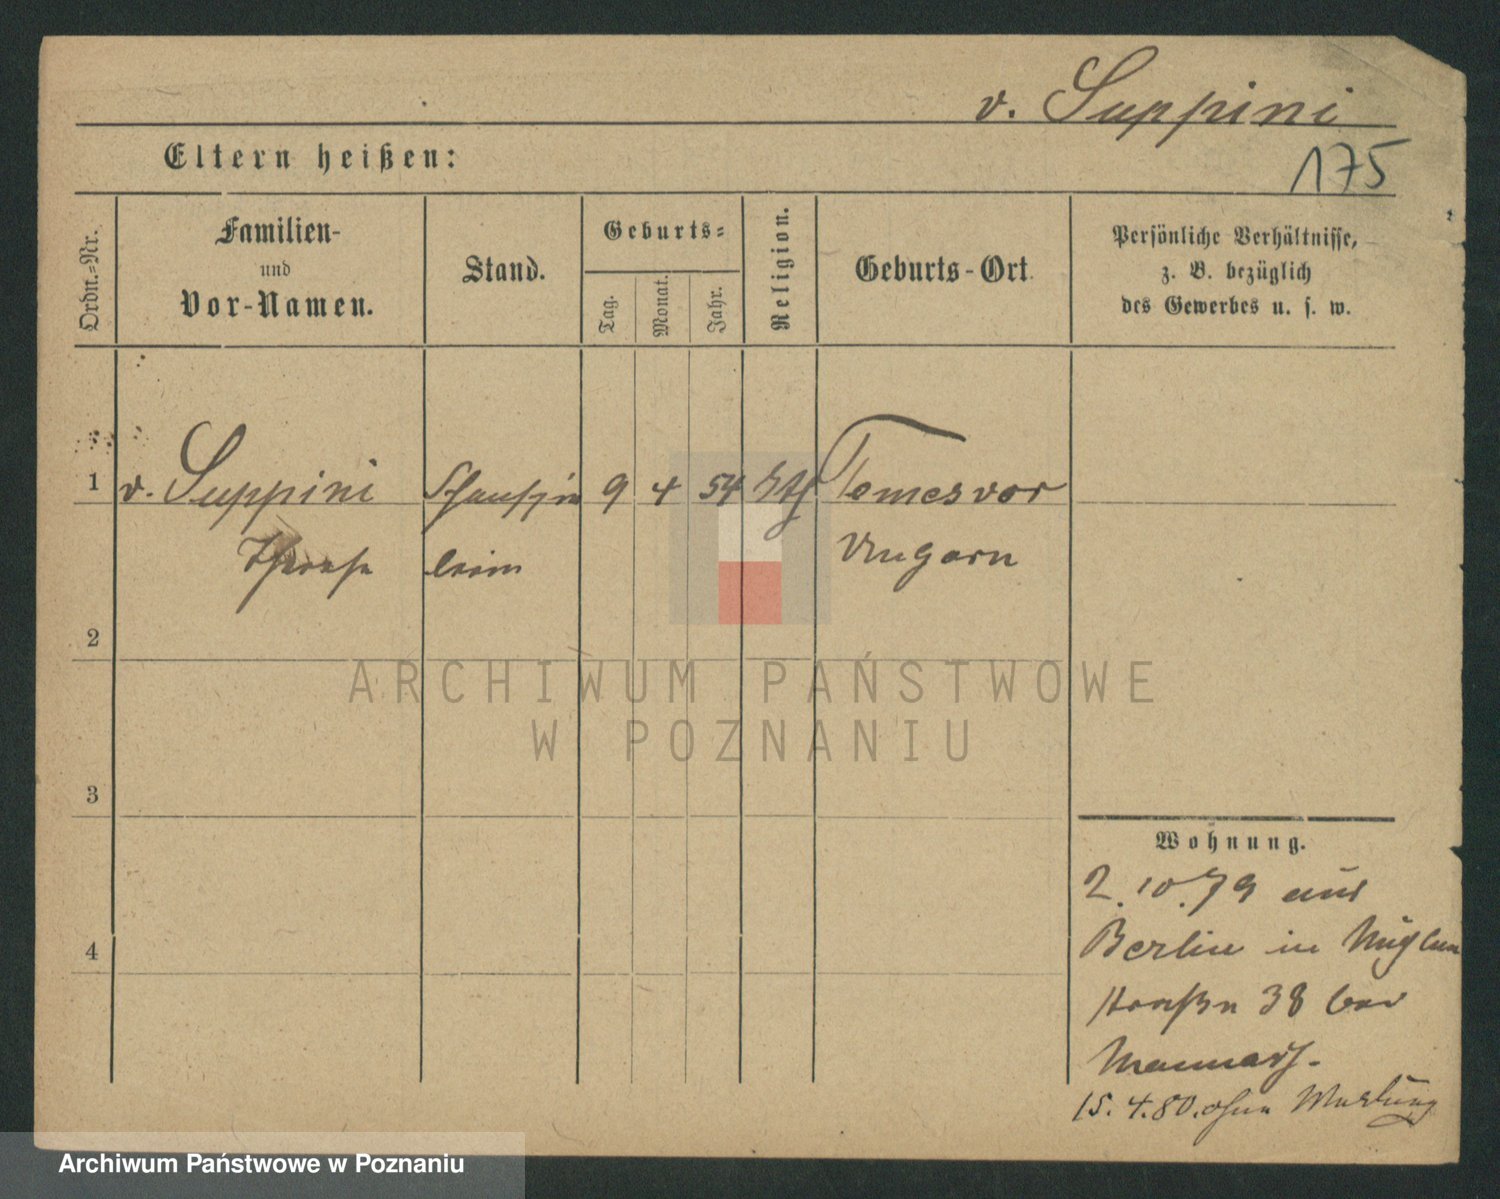 v. Suppini
175
Eltern heißen:
Ordn.=Nr.
Familien-
und
Vor-Namen.
Stand.
Geburts=
Tag.
Monat.
Jahr.
Religion.
Geburts-Ort
Persönliche Verhältnisse,
z. B. bezüglich
des Gewerbes u. s. w.
1 v. Suppini Schauspie 9 4 54 kth Temesvar
Therese lerin Ungarn
2
3
4
Wohnung.
2.10.79 aus
Berlin in
Straße 38 bei
15.4.80. ohne Meldung
ARCHIWUM PAŃSTWOWE
W POZNANIU
Archiwum Państwowe w Poznaniu